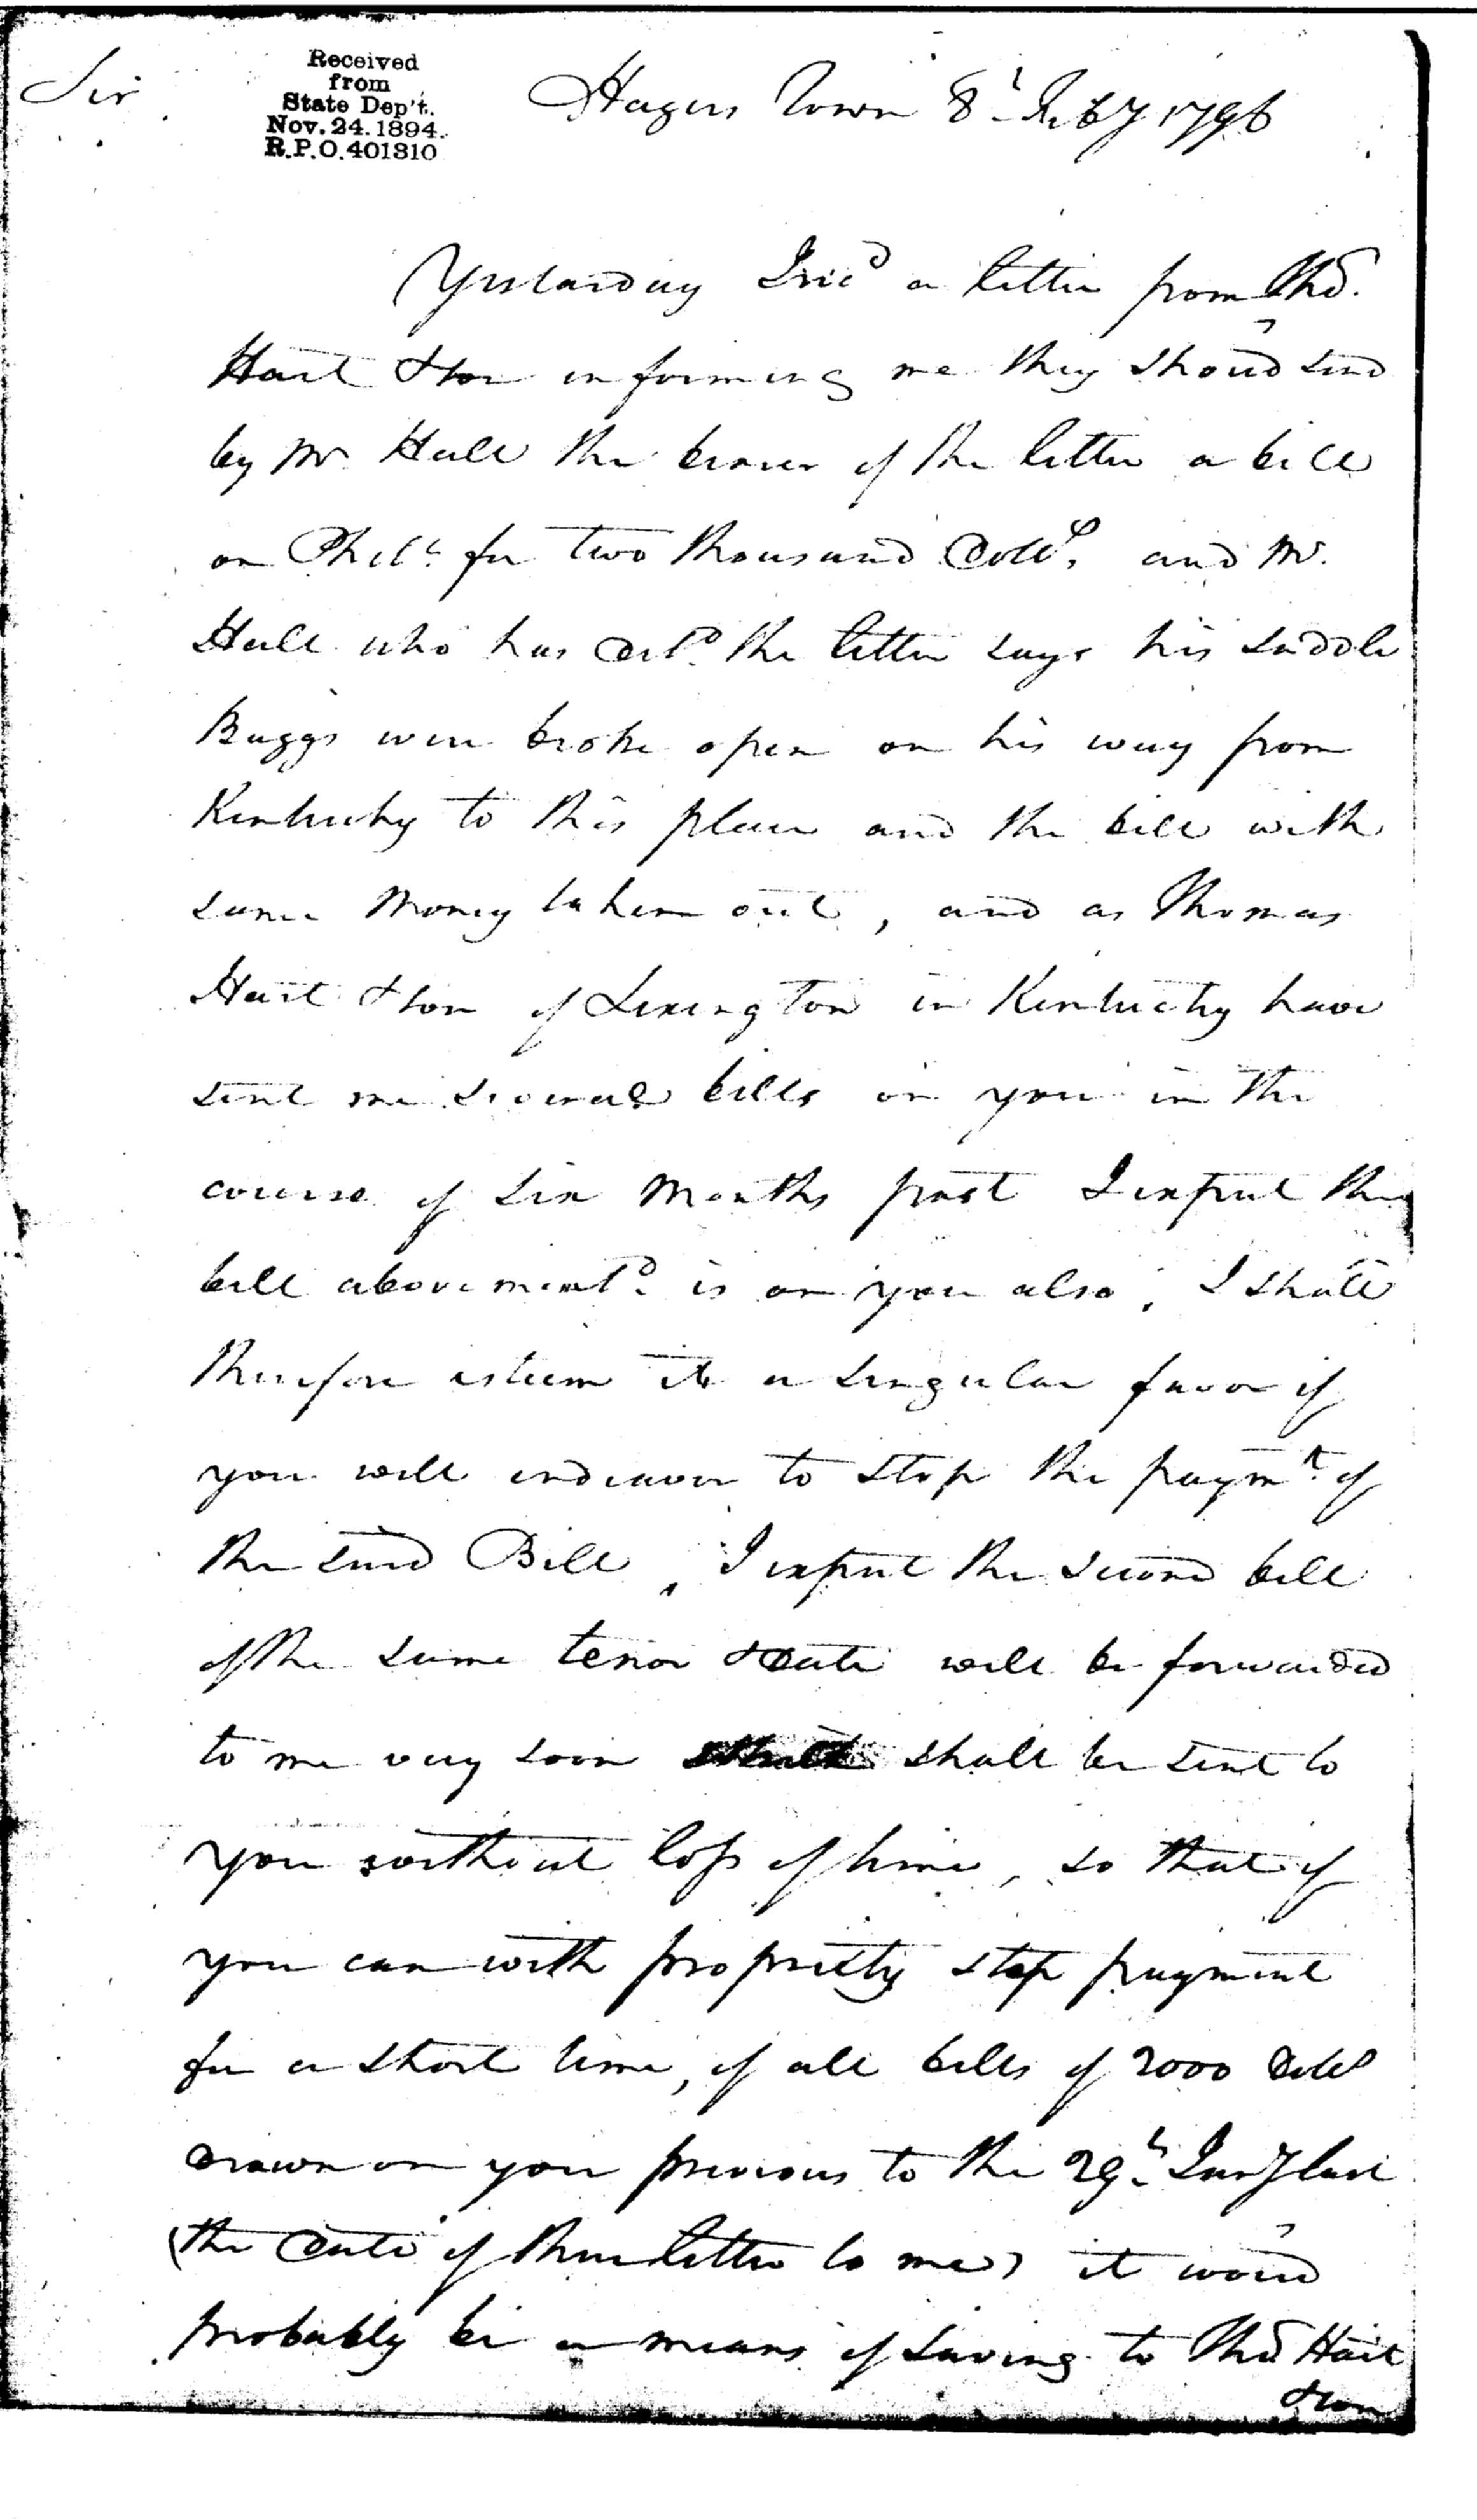 Sir
Received
from
State Dep't.
Nov. 24. 1894.
R.P.O. 401310
Hagers Town 8th Feby 1796
Yestarday I recd a letter from Thos.
Hart & Son informing me they shoud send
by Mr. Hall the bearer of the letter a bill
on Phila. for two thousand Dolls. and Mr.
Hall who has deld. the letter says his saddle
Baggs were broke open on his way from
Kentucky to this place and the bill with
some money taken out, and as Thomas
Hart & Son of Lexington in Kentucky have
sent me several bills on you in the
course of six months past I expect the
bill abovementd. is on you also, I shall
therefore esteem it a singular favor if
you will endeavor to stop the paymt. of
the said Bill, I expect the second bill
of the same tenor & date will be forwarded
to me very soon shall be sent to
you without loss of time, so that if
you can with propriety stop payment
for a short time, of all bills of 2000 Dolls
drawn on you previous to the 29th Jany last
(the date of their letter to me) it woud
probably be a means of saving to Thos Hart
& Son